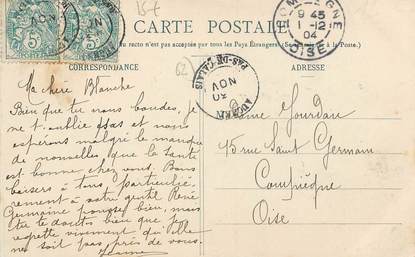 CARTE POSTALE
nt recto n'est pas accepté par tous les Pays Étrangers (Se à la Poste.)
CORRESPONDANCE
ADRESSE
COMPIÈGNE
9 45
1 -12
04
OISE
PAS-DE-CALAIS
30
NOV
62
Ma chère Blanche
Bien que tu nous boudes, je
ne t'oublie pas et nous
espérons malgré le manque
de nouvelles que la santé
est bonne chez vous. Bons
baisers à tous particuliè
rement à votre gentil René
Germaine pousse bien, mais
tu te doutes bien que je
regrette vivement qu'elle
ne soit pas près de vous.
Jeanne
Mme Jourdan
15 rue Saint Germain
Compiègne
Oise